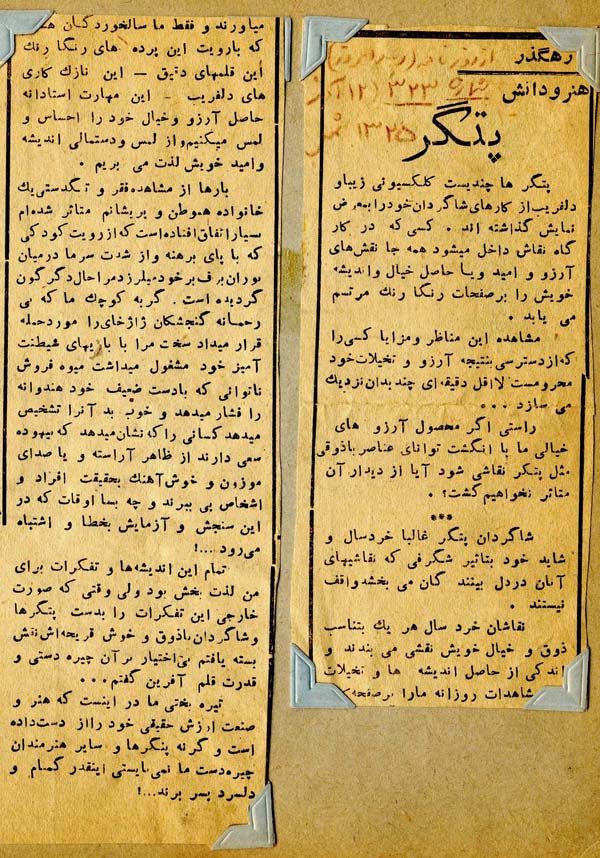 رهگذر
هنر و دانش
پتگر
پتگر ها چندیست کلکسیونی زیبا و
دلفریب از کارهای شاگردان خود را بمعرض
نمایش گذاشته اند . کسی که در کار
گاه نقاش داخل میشود همه جا نقش‌های
آرزو و امید و یا حاصل خیال و اندیشه
خویش را بر صفحات رنگا رنگ مرتسم
می یابد .
مشاهده این مناظر و مزایا کسی را
که از دسترسی بنتیجه آرزو و تخیلات خود
محرومست لااقل دقیقه ای چند بدان نزدیک
می سازد ...
راستی اگر محصول آرزو های
خیالی ما با انگشت توانای عناصر باذوقی
مثل پتگر نقاشی شود آیا از دیدار آن
متاثر نخواهیم گشت؟ .
***
شاگردان پتگر غالبا خردسال و
شاید خود بتاثیر شگرفی که نقاشیهای
آنان در دل بینندگان می بخشد واقف
نیستند .
نقاشان خرد سال هر یک بتناسب
ذوق و خیال خویش نقشی می بندند و
اندکی از حاصل اندیشه ها و تخیلات
مشاهدات روزانه ما را بر صفحه
میاورند و فقط ما سالخوردگان
که بارویت این پرده های رنگا رنگ
این قلمهای دقیق – این نازک کاری
های دلفریب - این مهارت استادانه
حاصل آرزو و خیال خود را احساس و
لمس میکنیم و از لمس و دستمالی اندیشه
و امید خویش لذت می بریم .
بارها از مشاهده فقر و تنگدستی یک
خانواده هموطن و پریشانم متاثر شده‌ام
بسیار اتفاق افتاده است که از رویت کودکی
که با پای برهنه و از شدت سرما در میان
بوران برف بر خود میلرزد مرا حال دگرگون
گردیده است . گربه کوچک ما که بی
رحمانه گنجشکان ژاژخای را مورد حمله
قرار میداد سخت مرا با بازیهای شیطنت
آمیز خود مشغول میداشت میوه فروش
ناتوانی که بادست ضعیف خود هندوانه
را فشار میدهد و خوب بد آنرا تشخیص
میدهد کسانی را که نشان میدهد که بیهوده
سعی دارند از ظاهر آراسته و یا صدای
موزون و خوش آهنگ بحقیقت افراد و
اشخاص پی ببرند و چه بسا اوقات که در
این سنجش و آزمایش بخطا و اشتباه
می‌رود ...!
تمام این اندیشه‌ها و تفکرات برای
من لذت بخش بود ولی وقتی که صورت
خارجی این تفکرات را بدست پتگرها
و شاگردان باذوق و خوش قریحه‌اش نقش
بسته یافتم بی‌اختیار بر آن چیره دستی و
قدرت قلم آفرین گفتم ...
تیره بختی ما در اینست که هنر و
صنعت ارزش حقیقی خود را از دست داده
است و گرنه پتگرها و سایر هنرمندان
چیره دست ما نمی‌بایستی اینقدر گمنام و
دلسرد بسر برند ...!